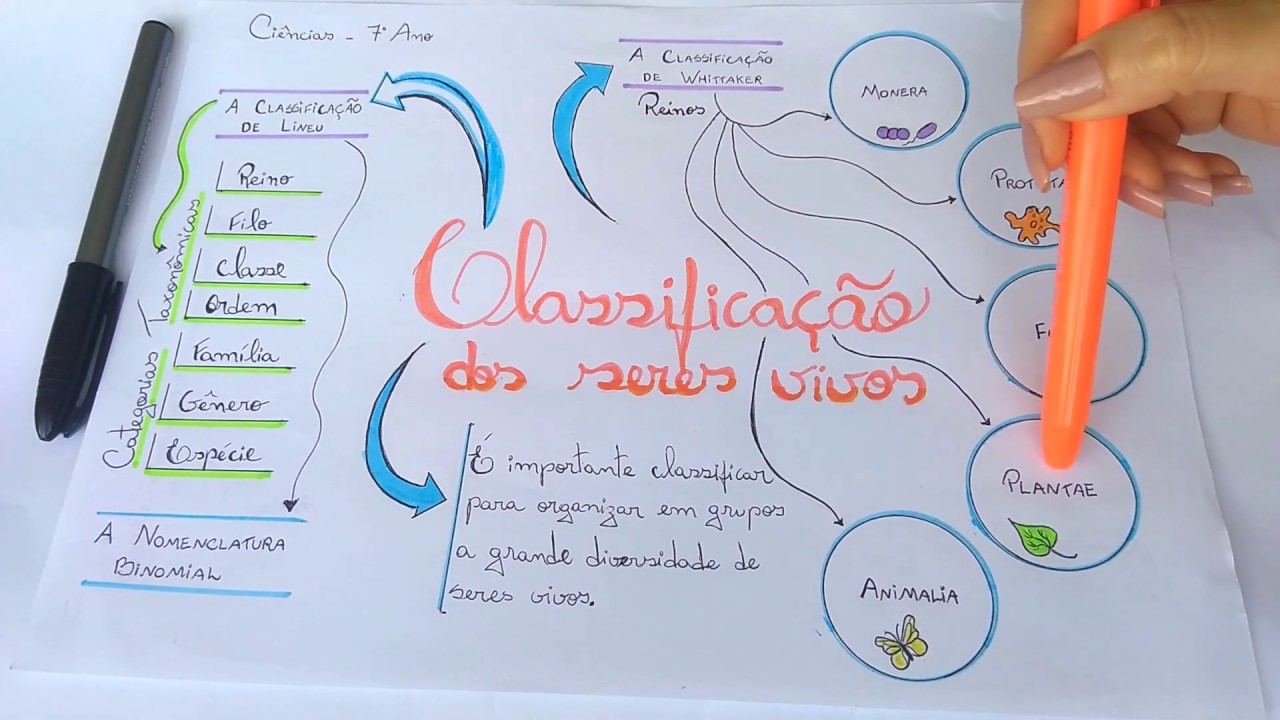 Ciências - 7º Ano
A Classificação
de Lineu
Reino
Filo
Classe
Ordem
Família
Gênero
Espécie
Categorias Taxonômicas
A Nomenclatura
Binomial
A Classificação
de Whittaker
Reinos
Monera
Plantae
Animalia
Classificação
dos seres vivos
É importante classificar
para organizar em grupos
a grande diversidade de
seres vivos.